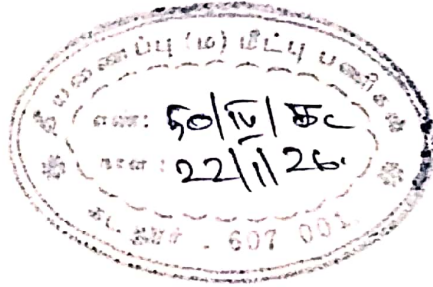 தீயணைப்பு (ம) மீட்பு பணிகள்
எண்: 50/IV/கட
நாள்: 22/1/26.
கடலூர் - 607 001.